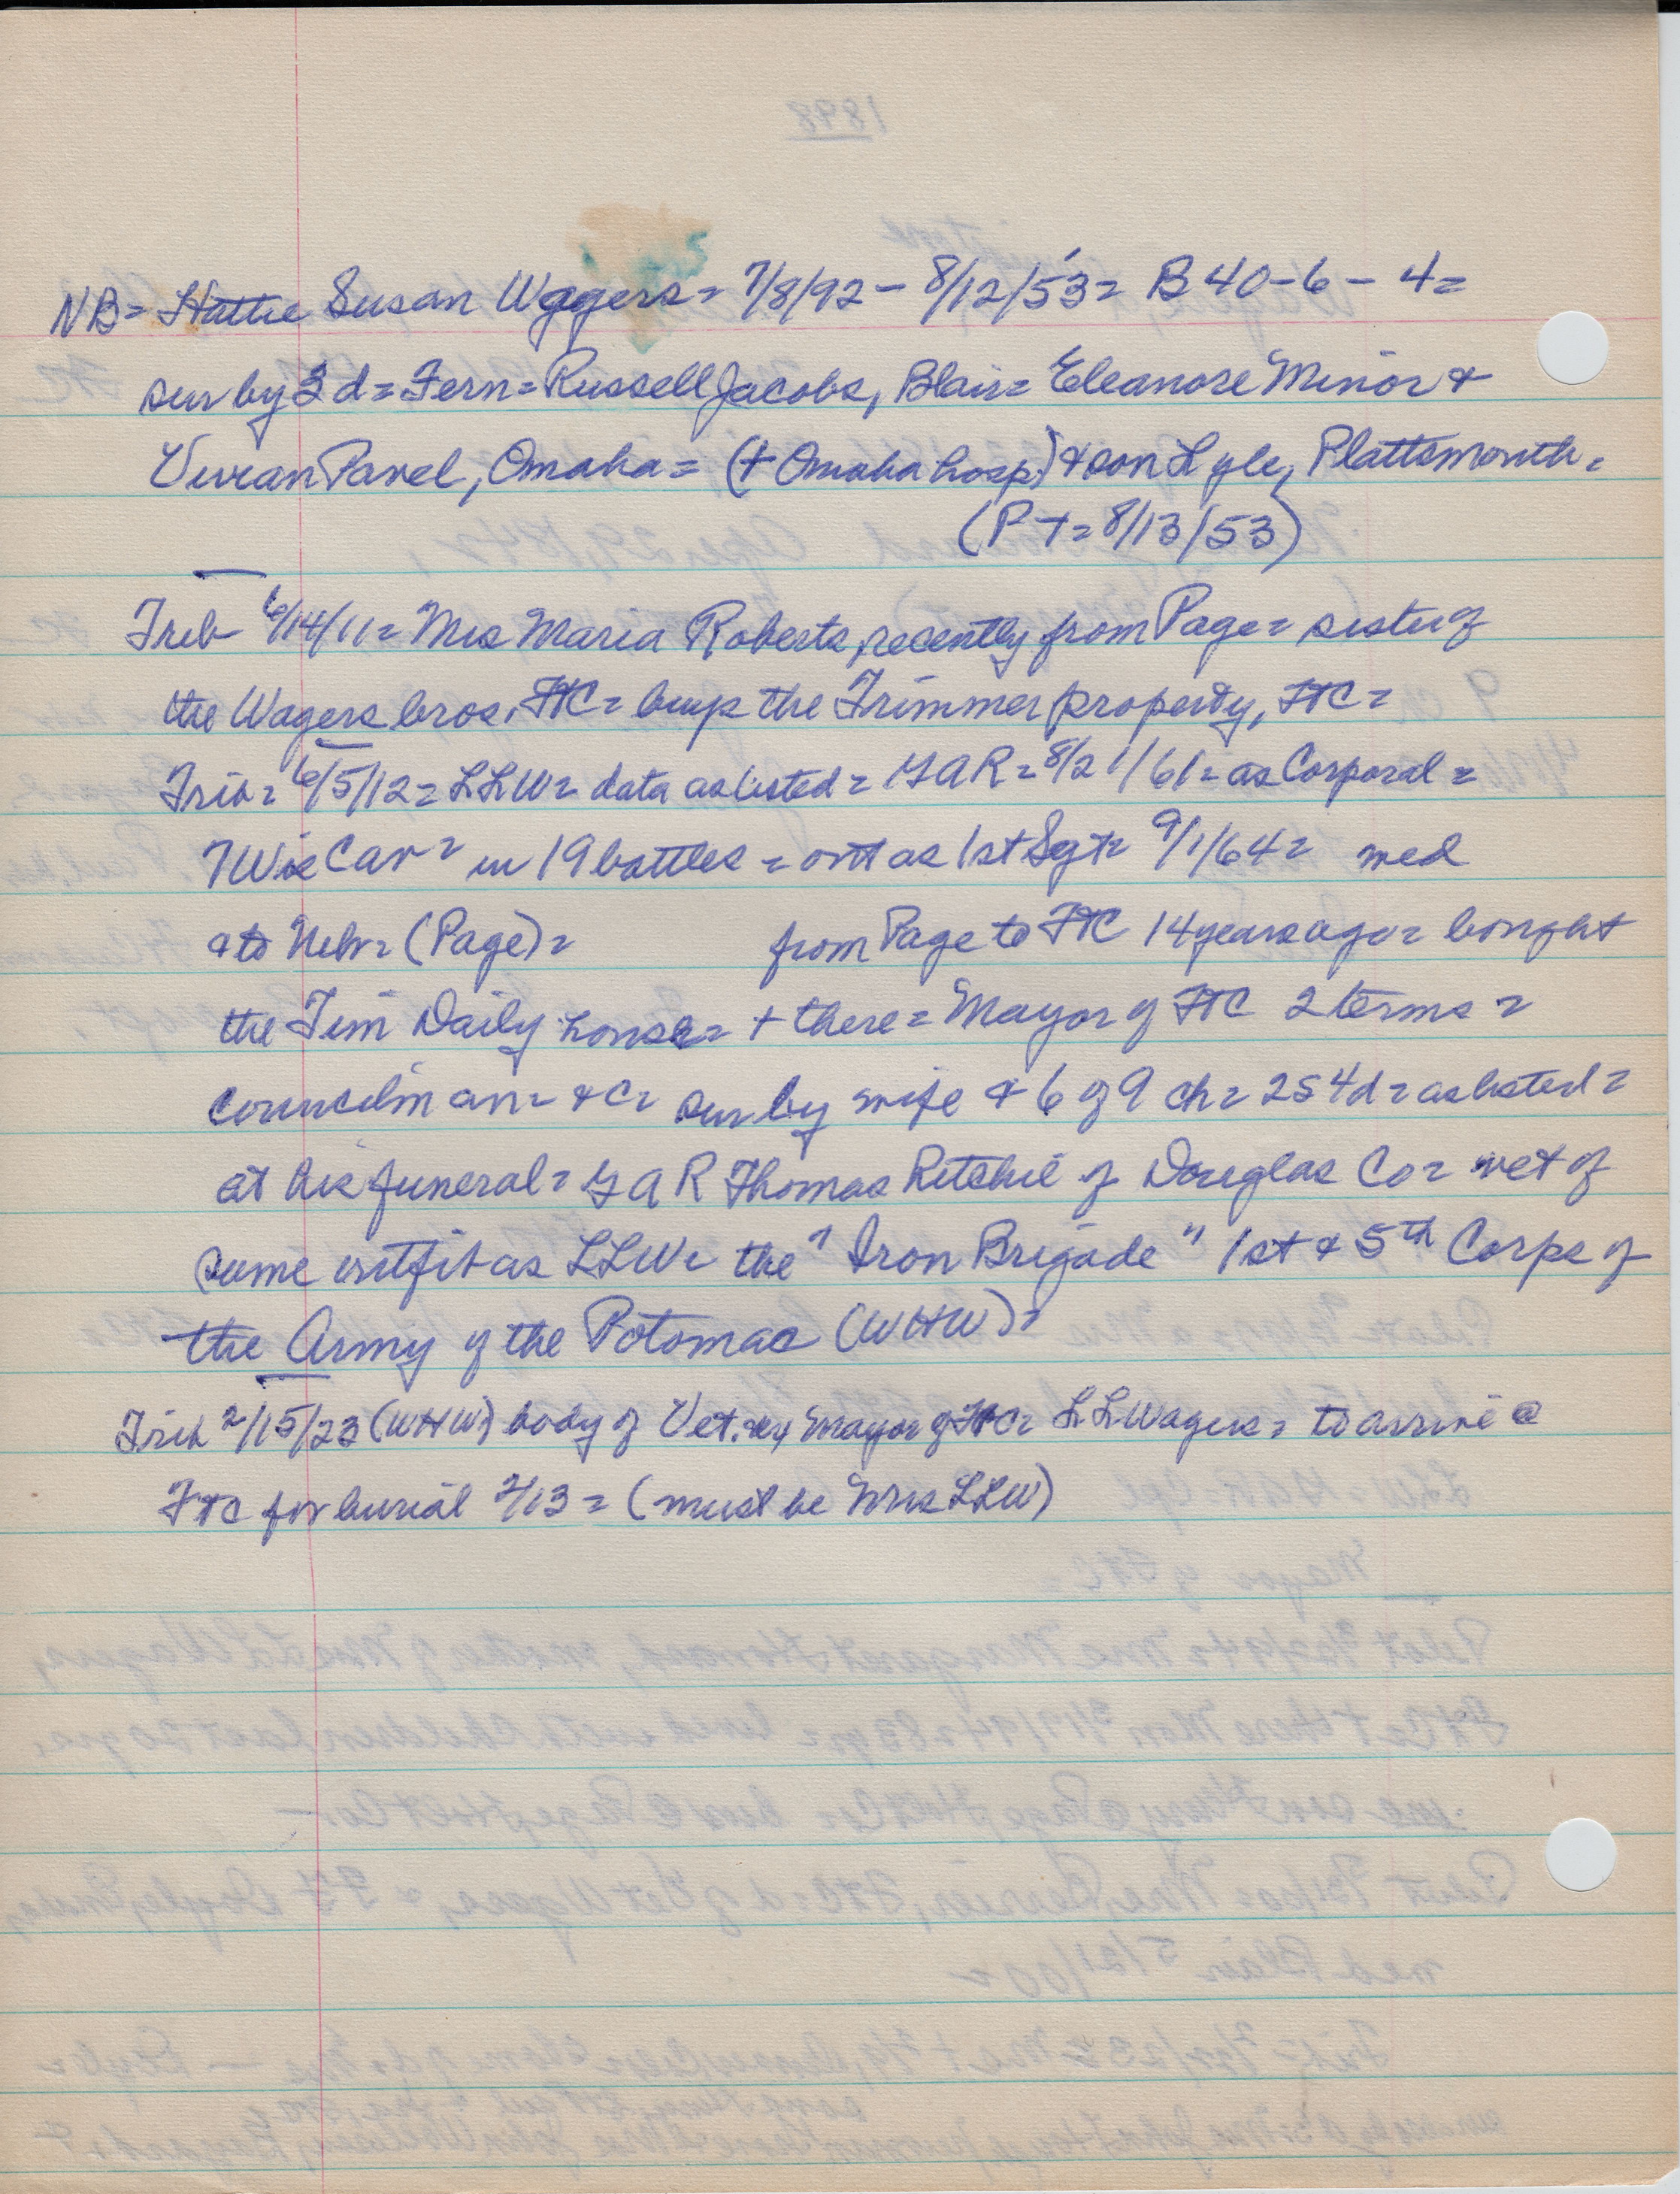 NB= Hattie Susan Wagers= 7/8/92 - 8/12/53= B 40-6-4=
sur by 3 d= Fern= Russell Jacobs, Blair= Eleanore Minor &
Vivian Pavel, Omaha= (+ Omaha hosp) & son Lyle, Plattsmouth.
(PT= 8/13/53)
Trib 6/14/11= Mrs Maria Roberts, recently from Page= sister of
the Wagers bros, FTC= buys the Trimmer property, FTC=
Trib= 6/5/12= LLW= data as listed= GAR= 8/21/61= as Corporal=
7 Wis Cav= in 19 battles= out as 1st Sgt= 9/1/64= med
& to Nebr= (Page)= from Page to FTC 14 years ago= bought
the Tim Daily house= + there= Mayor of FTC 2 terms=
councilman= &c= sur by wife & 6 of 9 ch= 2s 4d= as listed=
at his funeral= GAR Thomas Ritchie of Douglas Co= vet of
same outfit as LLW= the "Iron Brigade" 1st & 5th Corps of
the Army of the Potomac (WHW)=
Trib 2/15/23 (WHW) body of Vet. ex Mayor of FTC= LL Wagers= to arrive @
FTC for burial 2/13= (must be Mrs LLW)